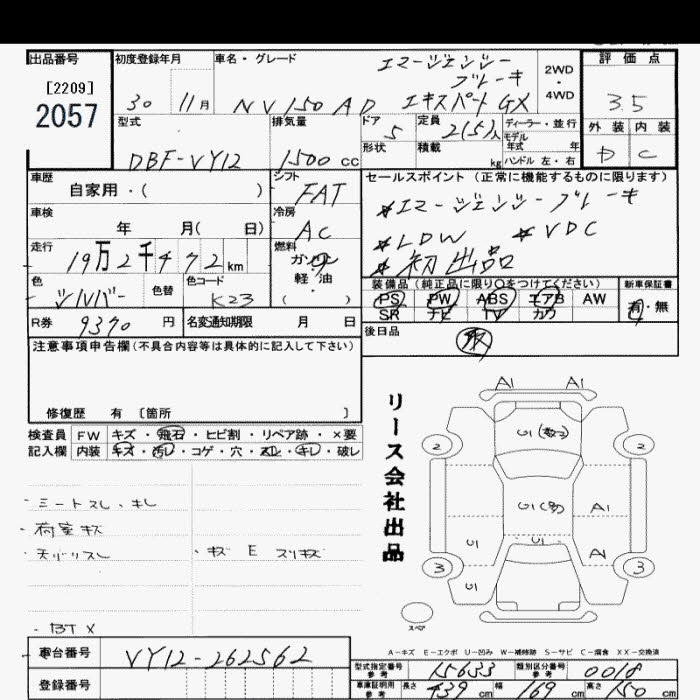 出品番号 初度登録年月 車名・グレード エマージェンシー ブレーキ 2WD・4WD 評価点
[2209]
2057
30 11月 NV150 AD エキスパート GX 3.5
型式 排気量 ドア 定員 ディーラー・並行 外装 内装
5 2(5)人 モデル年式 年
形状 積載 kg ハンドル 左・右
DBF-VY12 1500 cc D C
車歴 シフト セールスポイント (正常に機能するものに限ります)
自家用・( ) FAT
*エマージェンシーブレーキ
車検 冷房
年 月( 日) AC
*LDW *VDC
走行 燃料
19万2千472km ガソリン・軽油・( )
*初出品
色 色替 色コード
シルバー K23
装備品 (純正品に限り○をつけてください) 新車保証書
PS PW ABS エアB AW 有・無
SR ナビ TV カワ
R券 9370 円 名変通知期限 月 日
後日品 取
注意事項申告欄 (不具合内容等は具体的に記入して下さい)
修復歴 有 〔箇所 〕
検査員 FW キズ・飛石・ヒビ割・リペア跡・×要
記入欄 内装 キズ・汚レ・コゲ・穴・スレ・キレ・破レ
リース会社出品
A1 A1
2 2
U1
U1 A1
3 U1 A 3
U1
スペア
・シートスレ、キレ
・荷室キズ
・キズ E スリキズ
・BT X
A-キズ E-エクボ U-凹み W-補修跡 S-サビ C-腐食 XX-交換済
車台番号 VY12-262562
登録番号
型式指定番号 参考 15633 類別区分番号 参考 0018
車庫証明用 参考 長さ 439 cm 幅 169 cm 高さ 150 cm